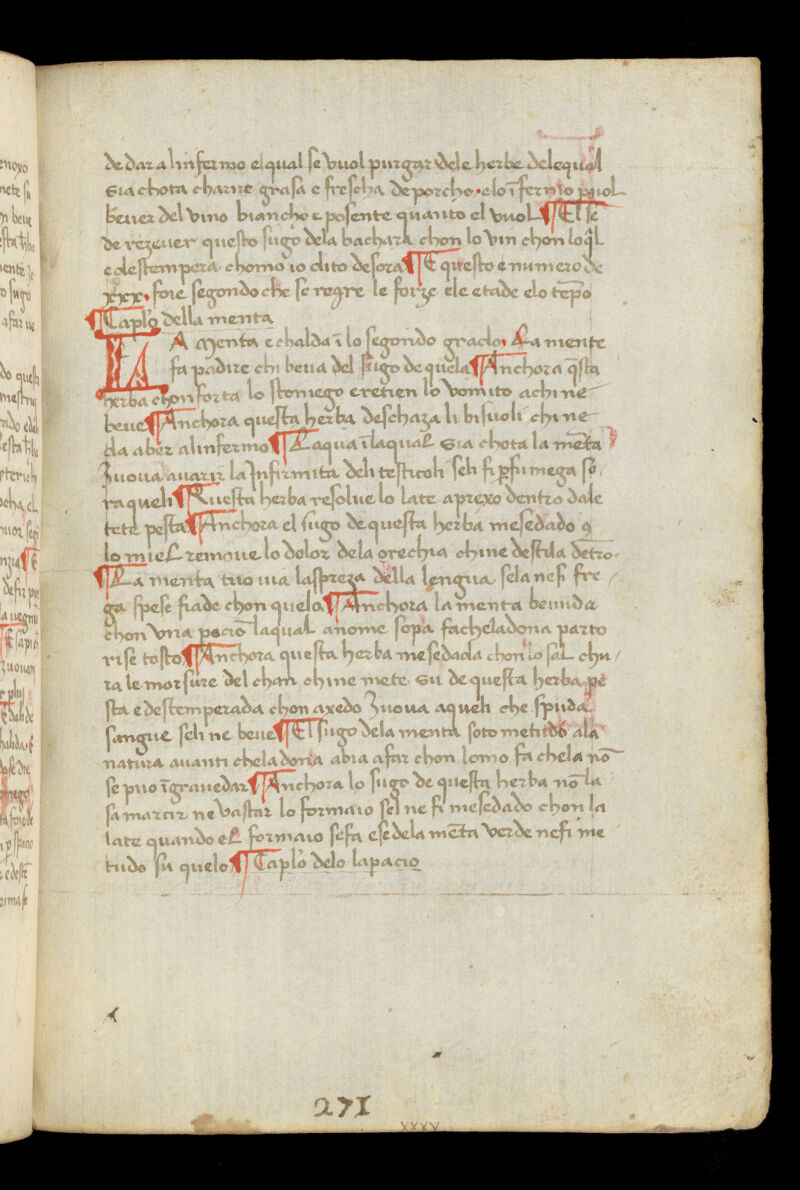 de dar al infermo el qual se vuol purgar dele herbe delequal
sia chota charne grasa e frescha de porcho · elo īfermo puol
bever del vino biancho e posente quanto el vuol ¶ El se
de rezever questo sugo dela bachara chon lo vin chon loql
e destempera chomo io dito desora ¶ E questo e numero de
xxx · foie segondo che se reqre le forze ele etade elo tēpo
¶ Caplo della menta
LA Menta e chalda ī lo segondo grado · La mente
fa padire chi beva del sugo de quela ¶ Anchora qsta
herba chonforta lo stomego e retien lo vomito achi ne
beve ¶ Anchora questa herba deschaza li bisuoli chi ne
da aber al infermo ¶ Laqua ī laqual sia chota la mēta
zuova avarir la Infirmita deli testicoli seli fi pfumega so
raqueli ¶ Questa herba resolve lo late aprexo dentro dale
tete pesta ¶ Anchora el sugo de questa herba mesedado q
lo miel remove lo dolor dela orechia chine destila dētro
¶ La menta tuo via laspreza della lengua sela nesi fre
ga spese fiade chon quela ¶ Anchora la menta bevuda
chon una pocio laqual a nome sopa fa cheladona parto
rise tosto ¶ Anchora questa herba mesedada chon lo sal chu
ra le morsure del chan chine mete su de questa herba pe
sta e destemperada chon axedo zuova aqueli che spuda
sangue seli ne beve ¶ El sugo dela menta soto metudo ala
natura avanti cheladona abia afar chon lomo fa chela nō
se puo īgravedar ¶ Anchora lo sugo de questa herba nō la
sa marcir ne vastar lo formaio sel ne fi mesedado chon la
late quando el formaio se fa e se dela mēta verde nefi me
tudo su quelo ¶ Caplo delo lapacio
271
xxxv